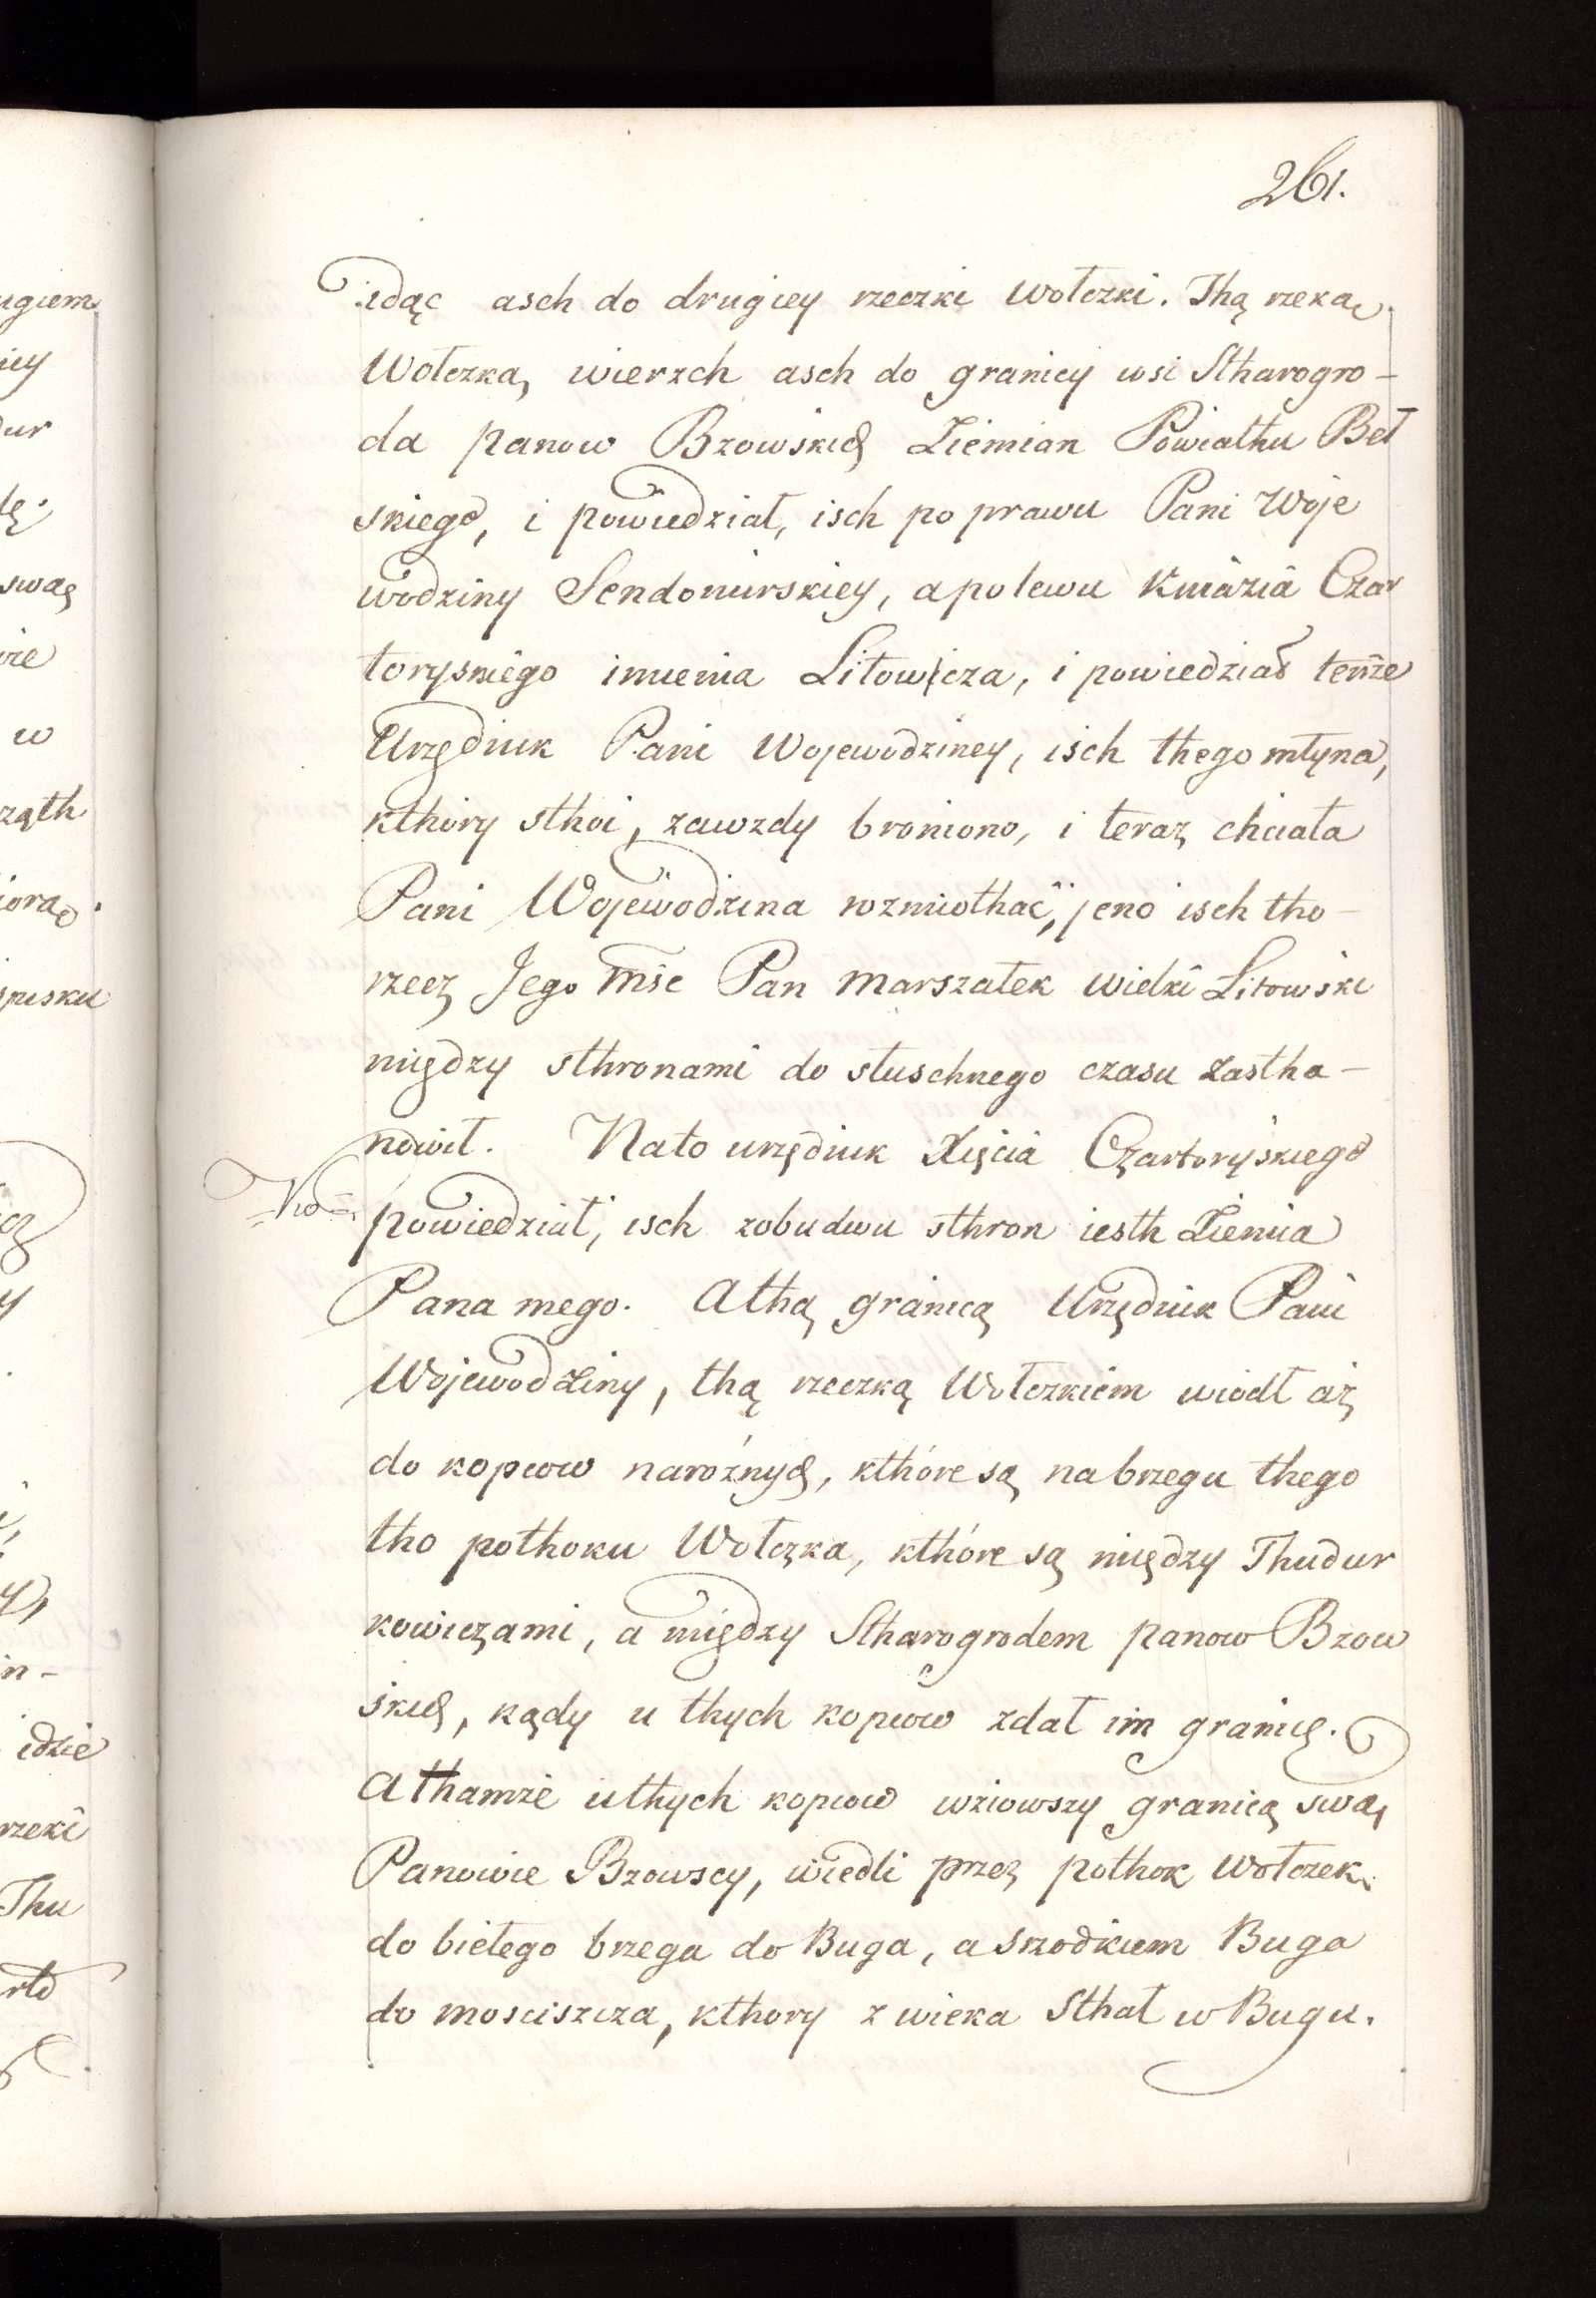 261.
idąc asch do drugiey rzeczki Wołczki. Thą rzeką
Wołczką, wierzch asch do granicy wsi Stharogro-
da panow Bzowskich Ziemian Powiathu Beł
skiego, i powiedział, isch po prawu Pani Woje
wodziny Sendomirskiey, a po lewu Kniazia Czar
toryskiego imienia Litowicza, i powiedział tenże
Urzędnik Pani Wojewodziney, isch thego młyna,
kthory sthoi, zawzdy broniono, i teraz chciała
Pani Wojewodzina rozmiothać, jeno isch tho-
rzecz Jego Mśc Pan Marszałek wielki Litowski
między sthronami do słuschnego czasu zastha-
nowił. Nato urzędnik Xięcia Czartoryskiego
powiedział, isch zobudwu sthron iesth Ziemia
Pana mego. A thą granicą Urzędnik Pani
Wojewodziny, thą rzeczką Wołczkiem wiodł aż
do kopcow narożnych, kthóre są na brzegu thego
tho pothoku Wołczka, kthóre są między Thudur
kowiczami, a między Stharogrodem panow Bzow
skich, kędy u thych kopcow zdał im granicę.
A thamże u thych kopcow wziowszy granicą swą
Panowie Bzowscy, wiedli przez pothok Wołczek
do biełego brzega do Buga, a srzodkiem Buga
do mosciszcza, kthory z wieka Sthał w Bugu.